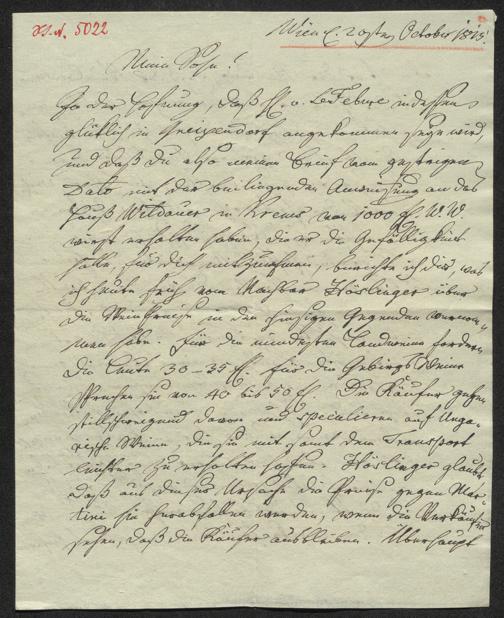 H.I.N. 5022
Wien d. 20sten October 1815.
Mein Sohn!
In der Hoffnung, daß H. v. LeFebure indessen
glücklich in Gneixendorf angekommen seyn wird,
und daß du also meinen Brief vom gestrigen
Dato mit der beiliegenden Anweisung an das
Hauß Wildauer in Krems von 1000 f. W.W.
wirst erhalten haben, die er die Gefälligkeit
hatte, für dich mitzunehmen, berichte ich dir, was
ich heute früh vom Mackler Höslinger über
die Weinpreise in den hiesigen Gegenden vernom-
men habe. Für die mindesten Landweine fordern
die Leute 30-35 f. für die Gebirgs Weine
sprechen sie von 40 bis 50 f. Die Käufer gehen
stillschweigend davon und speculieren auf Unga-
rische Weine, die sie mit samt dem Transport
leichter zu erhalten hoffen. Höslinger glaubt
daß aus dieser Ursache die Preise gegen Mar-
tini hie herabfallen werden, wenn die Verkäufer
sehen, daß die Käufer ausbleiben. Überhaupt